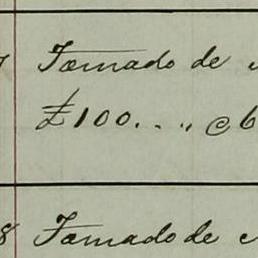 7 Tomado de
£100... " @ 6
8 Tomado de